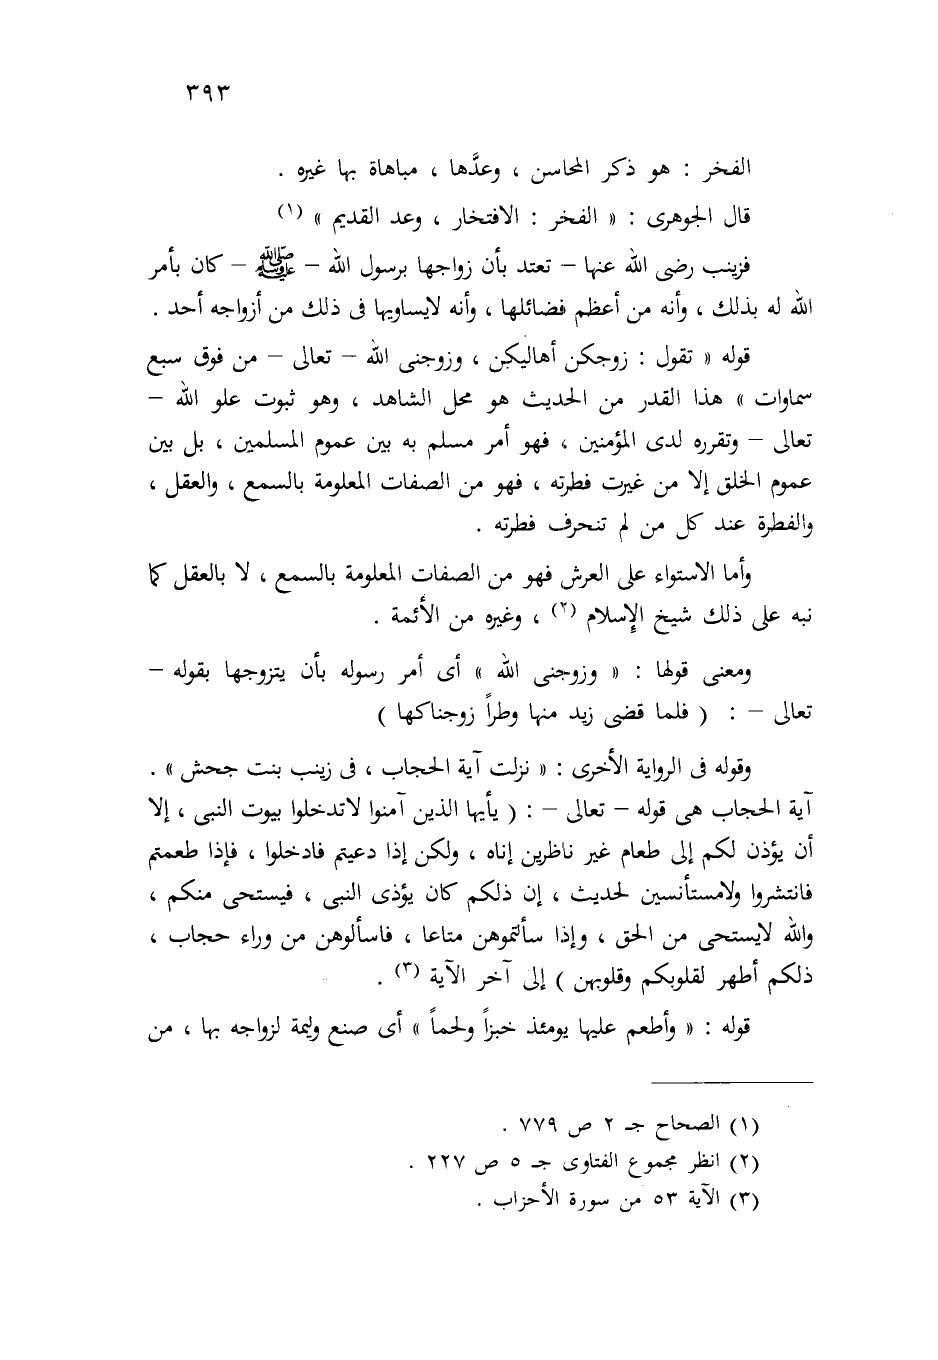 ٣٩٣
الفخر : هو ذكر المحاسن ، وعدَّها ، مباهاة بها غيره .
قال الجوهرى : « الفخر : الافتخار ، وعد القديم » (١)
فزينب رضى الله عنها – تعتد بأن زواجها برسول الله – ﷺ – كان بأمر
الله له بذلك ، وأنه من أعظم فضائلها ، وأنه لايساويها فى ذلك من أزواجه أحد .
قوله « تقول : زوجكن أهاليكن ، وزوجنى الله – تعالى – من فوق سبع
سماوات » هذا القدر من الحديث هو محل الشاهد ، وهو ثبوت علو الله –
تعالى – وتقرره لدى المؤمنين ، فهو أمر مسلم به بين عموم المسلمين ، بل بين
عموم الخلق إلا من غيرت فطرته ، فهو من الصفات المعلومة بالسمع ، والعقل ،
والفطرة عند كل من لم تنحرف فطرته .
وأما الاستواء على العرش فهو من الصفات المعلومة بالسمع ، لا بالعقل كما
نبه على ذلك شيخ الإسلام (٢) ، وغيره من الأئمة .
ومعنى قولها : « وزوجنى الله » أى أمر رسوله بأن يتزوجها بقوله –
تعالى – : ( فلما قضى زيد منها وطراً زوجناكها )
وقوله فى الرواية الأخرى : « نزلت آية الحجاب ، فى زينب بنت جحش » .
آية الحجاب هى قوله – تعالى – : ( يأيها الذين آمنوا لاتدخلوا بيوت النبى ، إلا
أن يؤذن لكم إلى طعام غير ناظرين إناه ، ولكن إذا دعيتم فادخلوا ، فإذا طعمتم
فانتشروا ولامستأنسين لحديث ، إن ذلكم كان يؤذى النبى ، فيستحى منكم ،
والله لايستحى من الحق ، وإذا سألتموهن متاعا ، فاسألوهن من وراء حجاب ،
ذلكم أطهر لقلوبكم وقلوبهن ) إلى آخر الآية (٣) .
قوله : « وأطعم عليها يومئذ خبزاً ولحماً » أى صنع وليمة لزواجه بها ، من
(١) الصحاح جـ ٢ ص ٧٧٩ .
(٢) انظر مجموع الفتاوى جـ ٥ ص ٢٢٧ .
(٣) الآية ٥٣ من سورة الأحزاب .